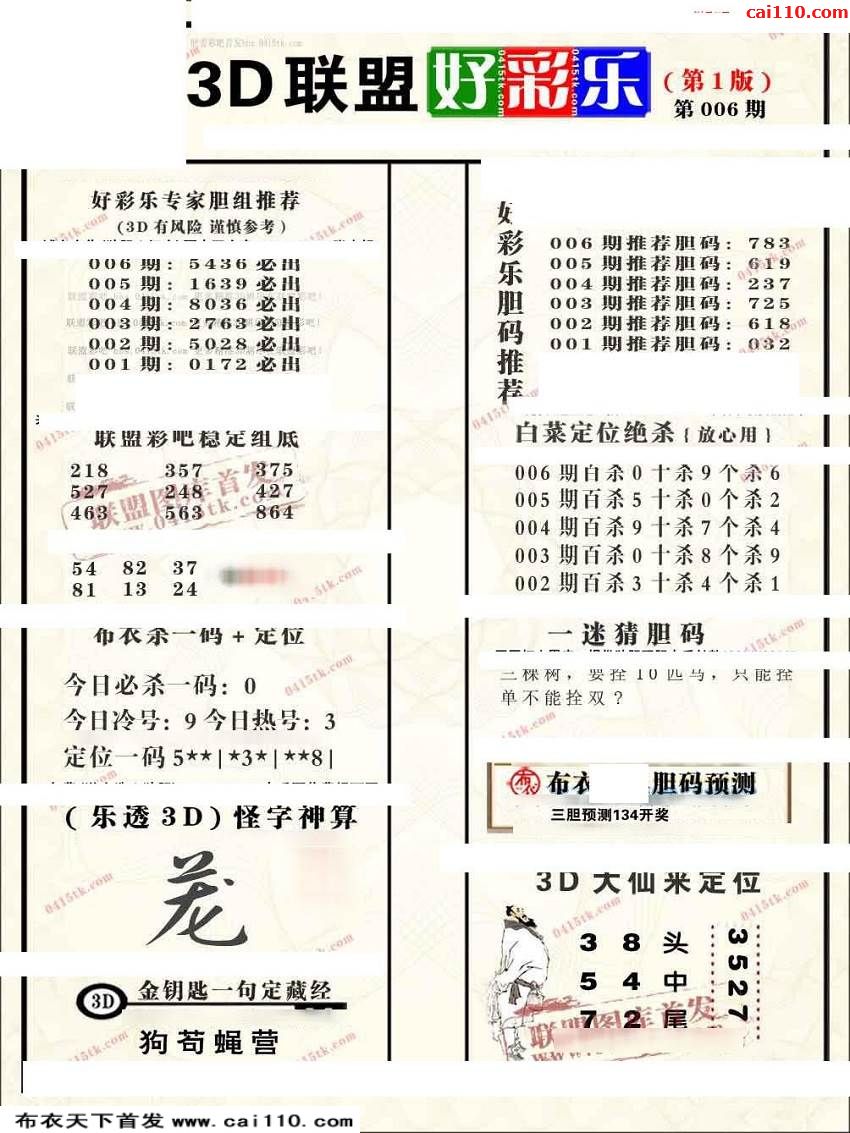 cai110.com
3D联盟好彩乐(第1版)
第006期
好彩乐专家胆组推荐
(3D有风险 谨慎参考)
006期:5436必出
005期:1639必出
004期:8036必出
003期:2763必出
002期:5028必出
001期:0172必出
联盟彩吧稳定组底
218 357 375
527 248 427
463 563 864
54 82 37
81 13 24
布衣杀一码+定位
今日必杀一码:0
今日冷号:9 今日热号:3
定位一码5**|*3*|**8|
(乐透3D)怪字神算
3D 金钥匙一句定藏经
狗苟蝇营
好彩乐胆码推荐
006期推荐胆码:783
005期推荐胆码:619
004期推荐胆码:237
003期推荐胆码:725
002期推荐胆码:618
001期推荐胆码:032
白菜定位绝杀{放心用}
006期白杀0十杀9个杀6
005期百杀5十杀0个杀2
004期百杀9十杀7个杀4
003期百杀0十杀8个杀9
002期百杀3十杀4个杀1
一迷猜胆码
三棵树,要拴10匹马,只能拴
单不能拴双?
布衣 胆码预测
三胆预测134开奖
3D大仙来定位
3 8头
5 4中
7 2尾
3527
联盟图库首发
www.0415tk.com
布衣天下首发 www.cai110.com